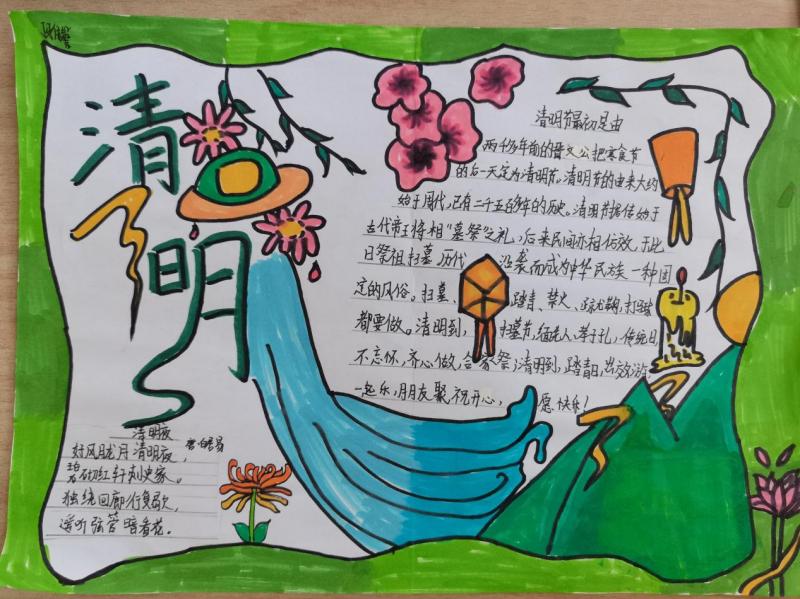 清明
清明节最初是由
两千多年前的晋文公把寒食节
的后一天定为清明节。清明节的由来大约
始于周代,已有二千五百多年的历史。清明节据传始于
古代帝王将相"墓祭"之礼,后来民间亦相仿效,于此
日祭祖扫墓,历代沿袭而成为中华民族一种固
定的风俗。扫墓、踏青、禁火、
都要做。清明到,扫墓节,
不忘怀,齐心做,合家祭;清明到,踏青日,出效游,
一起乐,朋友聚,祝开心,愿快乐!
清明夜
唐 白居易
好风胧月清明夜,
碧砌红轩刺史家。
独绕回廊行复歇,
遥听弦管暗看花。